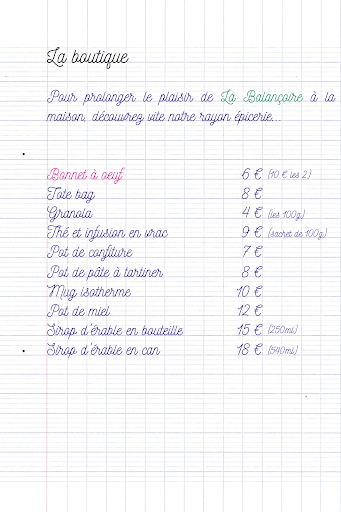 La boutique
Pour prolonger le plaisir de La Balançoire à la
maison, découvrez vite notre rayon épicerie...
Bonnet à oeuf 6 € (10 € les 2)
Tote bag 8 €
Granola 4 € (les 100g)
Thé et infusion en vrac 9 € (sachet de 100g)
Pot de confiture 7 €
Pot de pâte à tartiner 8 €
Mug isotherme 10 €
Pot de miel 12 €
Sirop d'érable en bouteille 15 € (250ml)
Sirop d'érable en can 18 € (540ml)